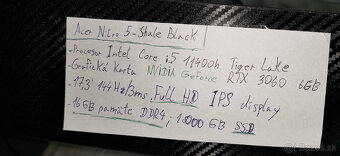 Acer Nitro 5-Shale Black
-Procesor Intel Core i5 11400h Tiger Lake
-Grafická Karta NVIDIA GeForce RTX 3060 6GB
-17,3" 144Hz/3ms Full HD IPS display
-16GB pamäte DDR4, 1000GB SSD
bazos.sk